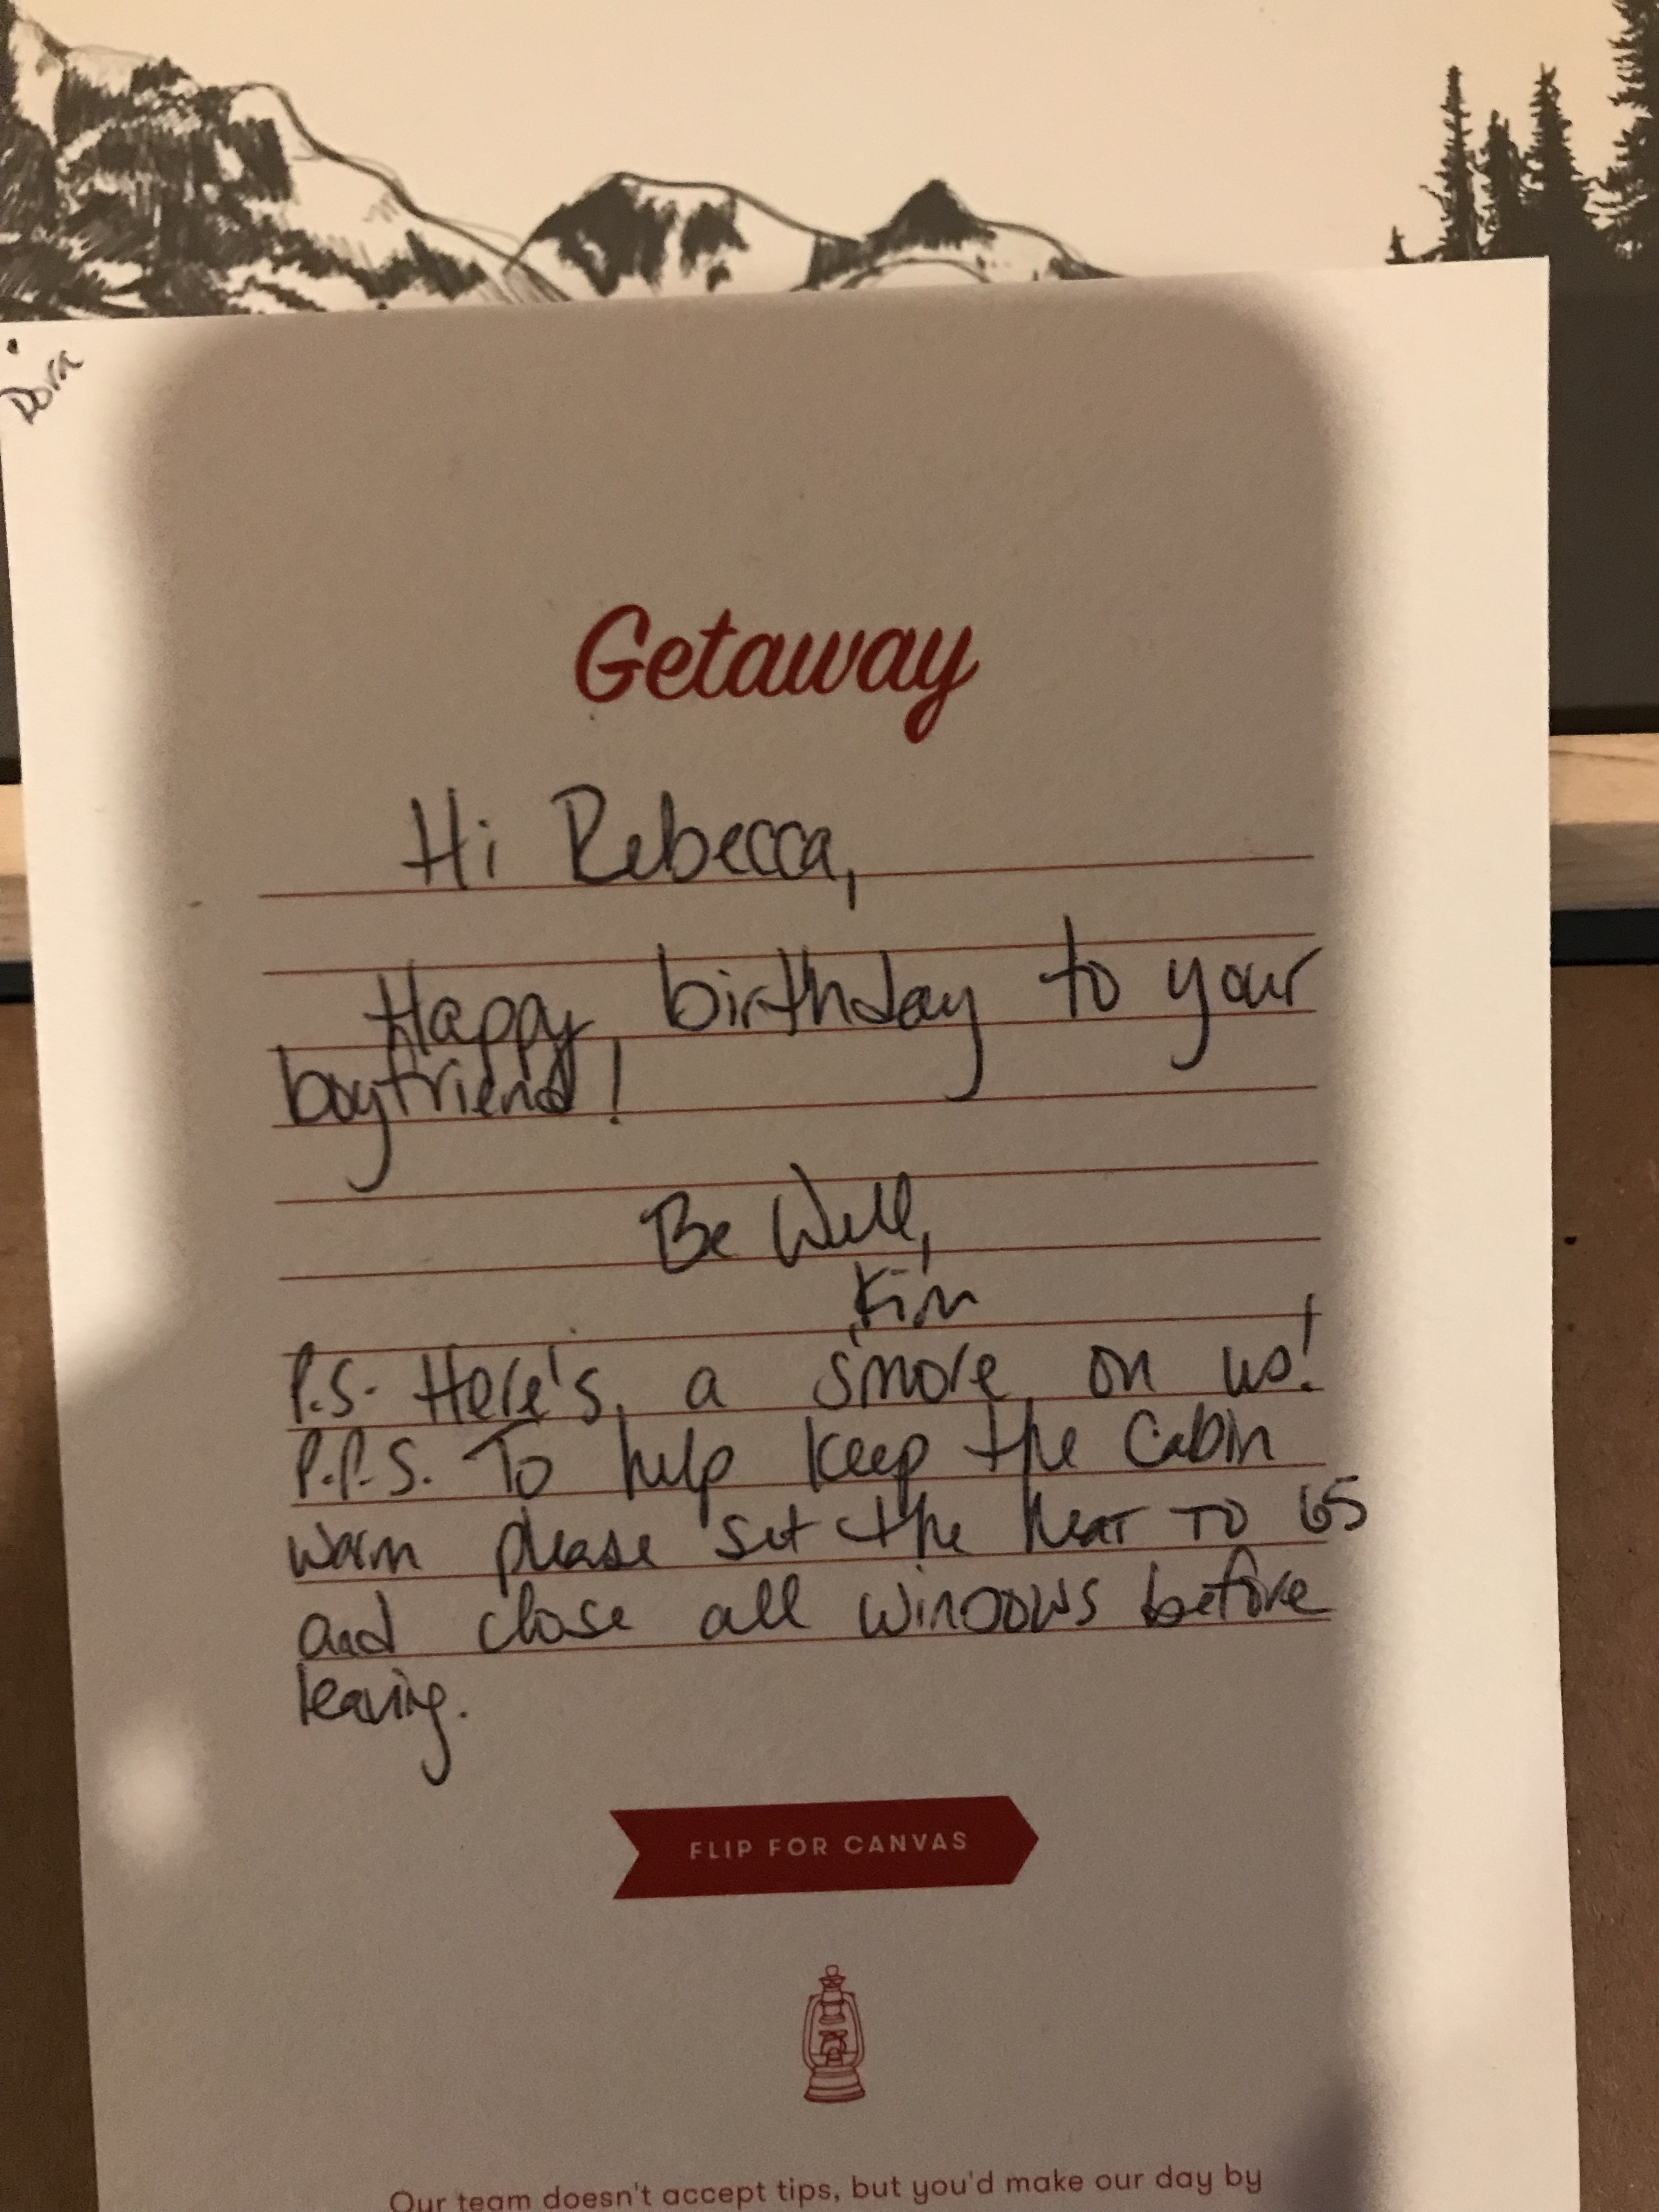 Dora
Getaway
Hi Rebecca,
Happy birthday to your
boyfriend!
Be Well,
Kim
P.S. Here's a s'more on us!
P.P.S. To help keep the cabin
warm please set the heat to 65
and close all windows before
leaving.
FLIP FOR CANVAS
Our team doesn't accept tips, but you'd make our day by